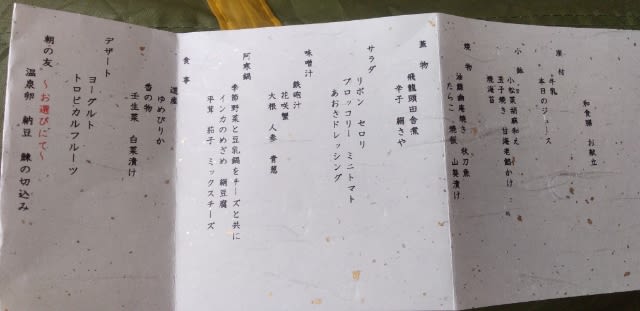 和食膳　お献立
座付
牛乳
本日のジュース
小鉢
小松菜胡麻和え
玉子焼き　甘海老餡かけ
焼海苔
焼物
油幽庵焼き　秋刀魚
たらこ　焼飯　山葵漬け
蓋物
飛龍頭田舎煮
辛子　絹さや
サラダ
リボン　セロリ
ブロッコリー　ミニトマト
あおさドレッシング
味噌汁
鉄砲汁
花咲蟹
大根　人参　青葱
阿寒鍋
季節野菜と豆乳鍋をチーズと共に
インカのめざめ　絹豆腐
平茸　茄子　ミックスチーズ
食事
道産
ゆめぴりか
香の物
壬生菜　白菜漬け
デザート
ヨーグルト
トロピカルフルーツ
朝の友　～お選びにて～
温泉卵　納豆　鰊の切込み